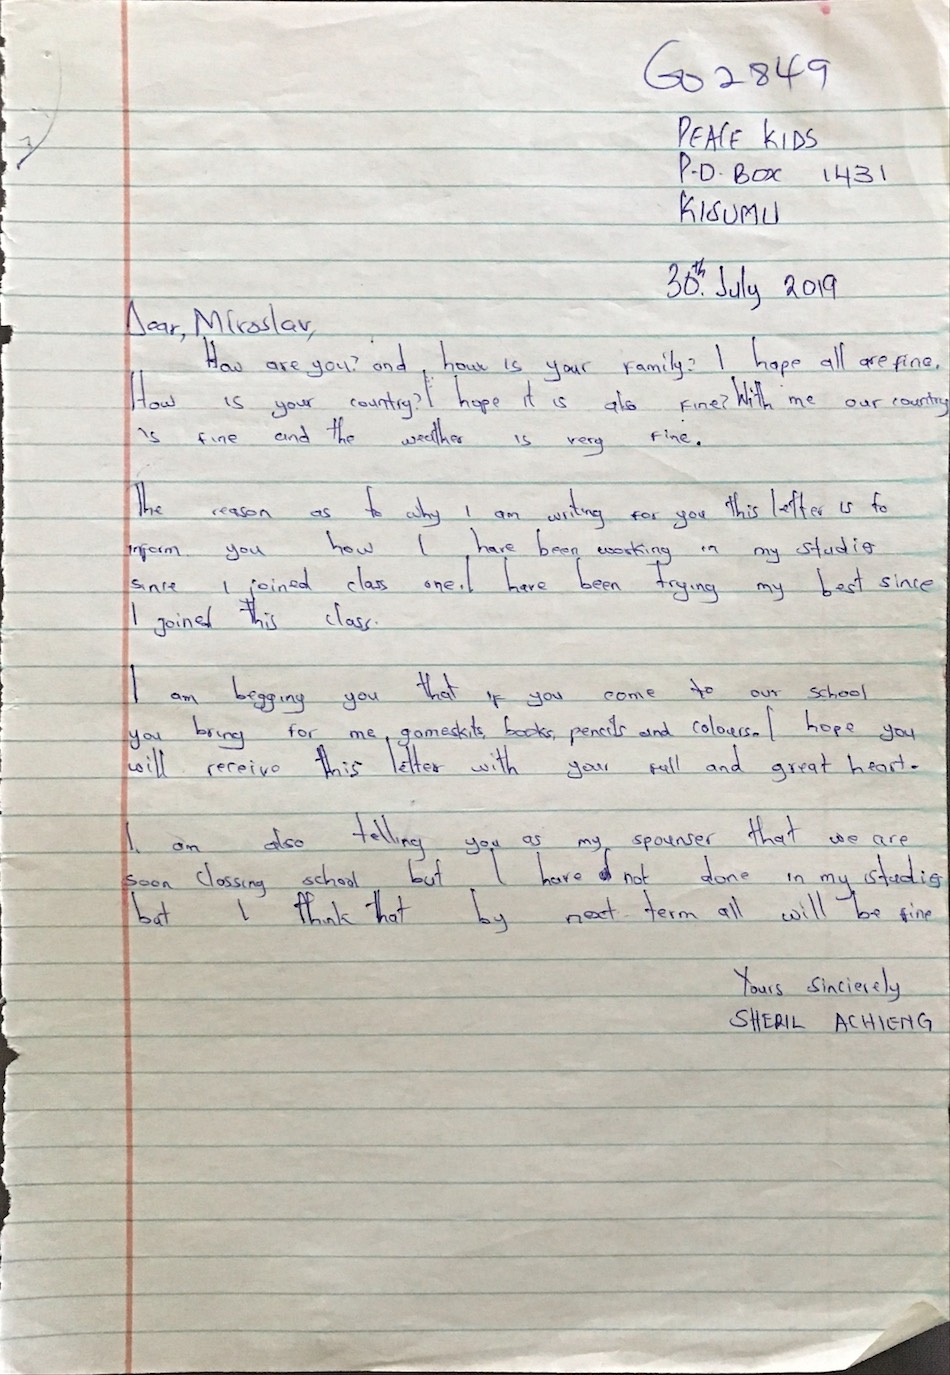 Go 2849
PEACE KIDS
P.O. BOX 1431
KISUMU
30th. July 2019
Dear, Miroslav,
How are you? and, how is your family? I hope all are fine.
How is your country? I hope it is also fine? With me our country
is fine and the weather is very fine.
The reason as to why I am writing for you this letter is to
inform you how I have been working in my studis
since I joined class one. I have been trying my best since
I joined this class.
I am begging you that if you come to our school
you bring for me, gameskits, books, pencils and colours. I hope you
will receive this letter with your full and great heart.
I am also telling you as my spounser that we are
soon clossing school but I have not done in my studis
but I think that by next term all will be fine
Yours sincierely
SHERIL ACHIENG